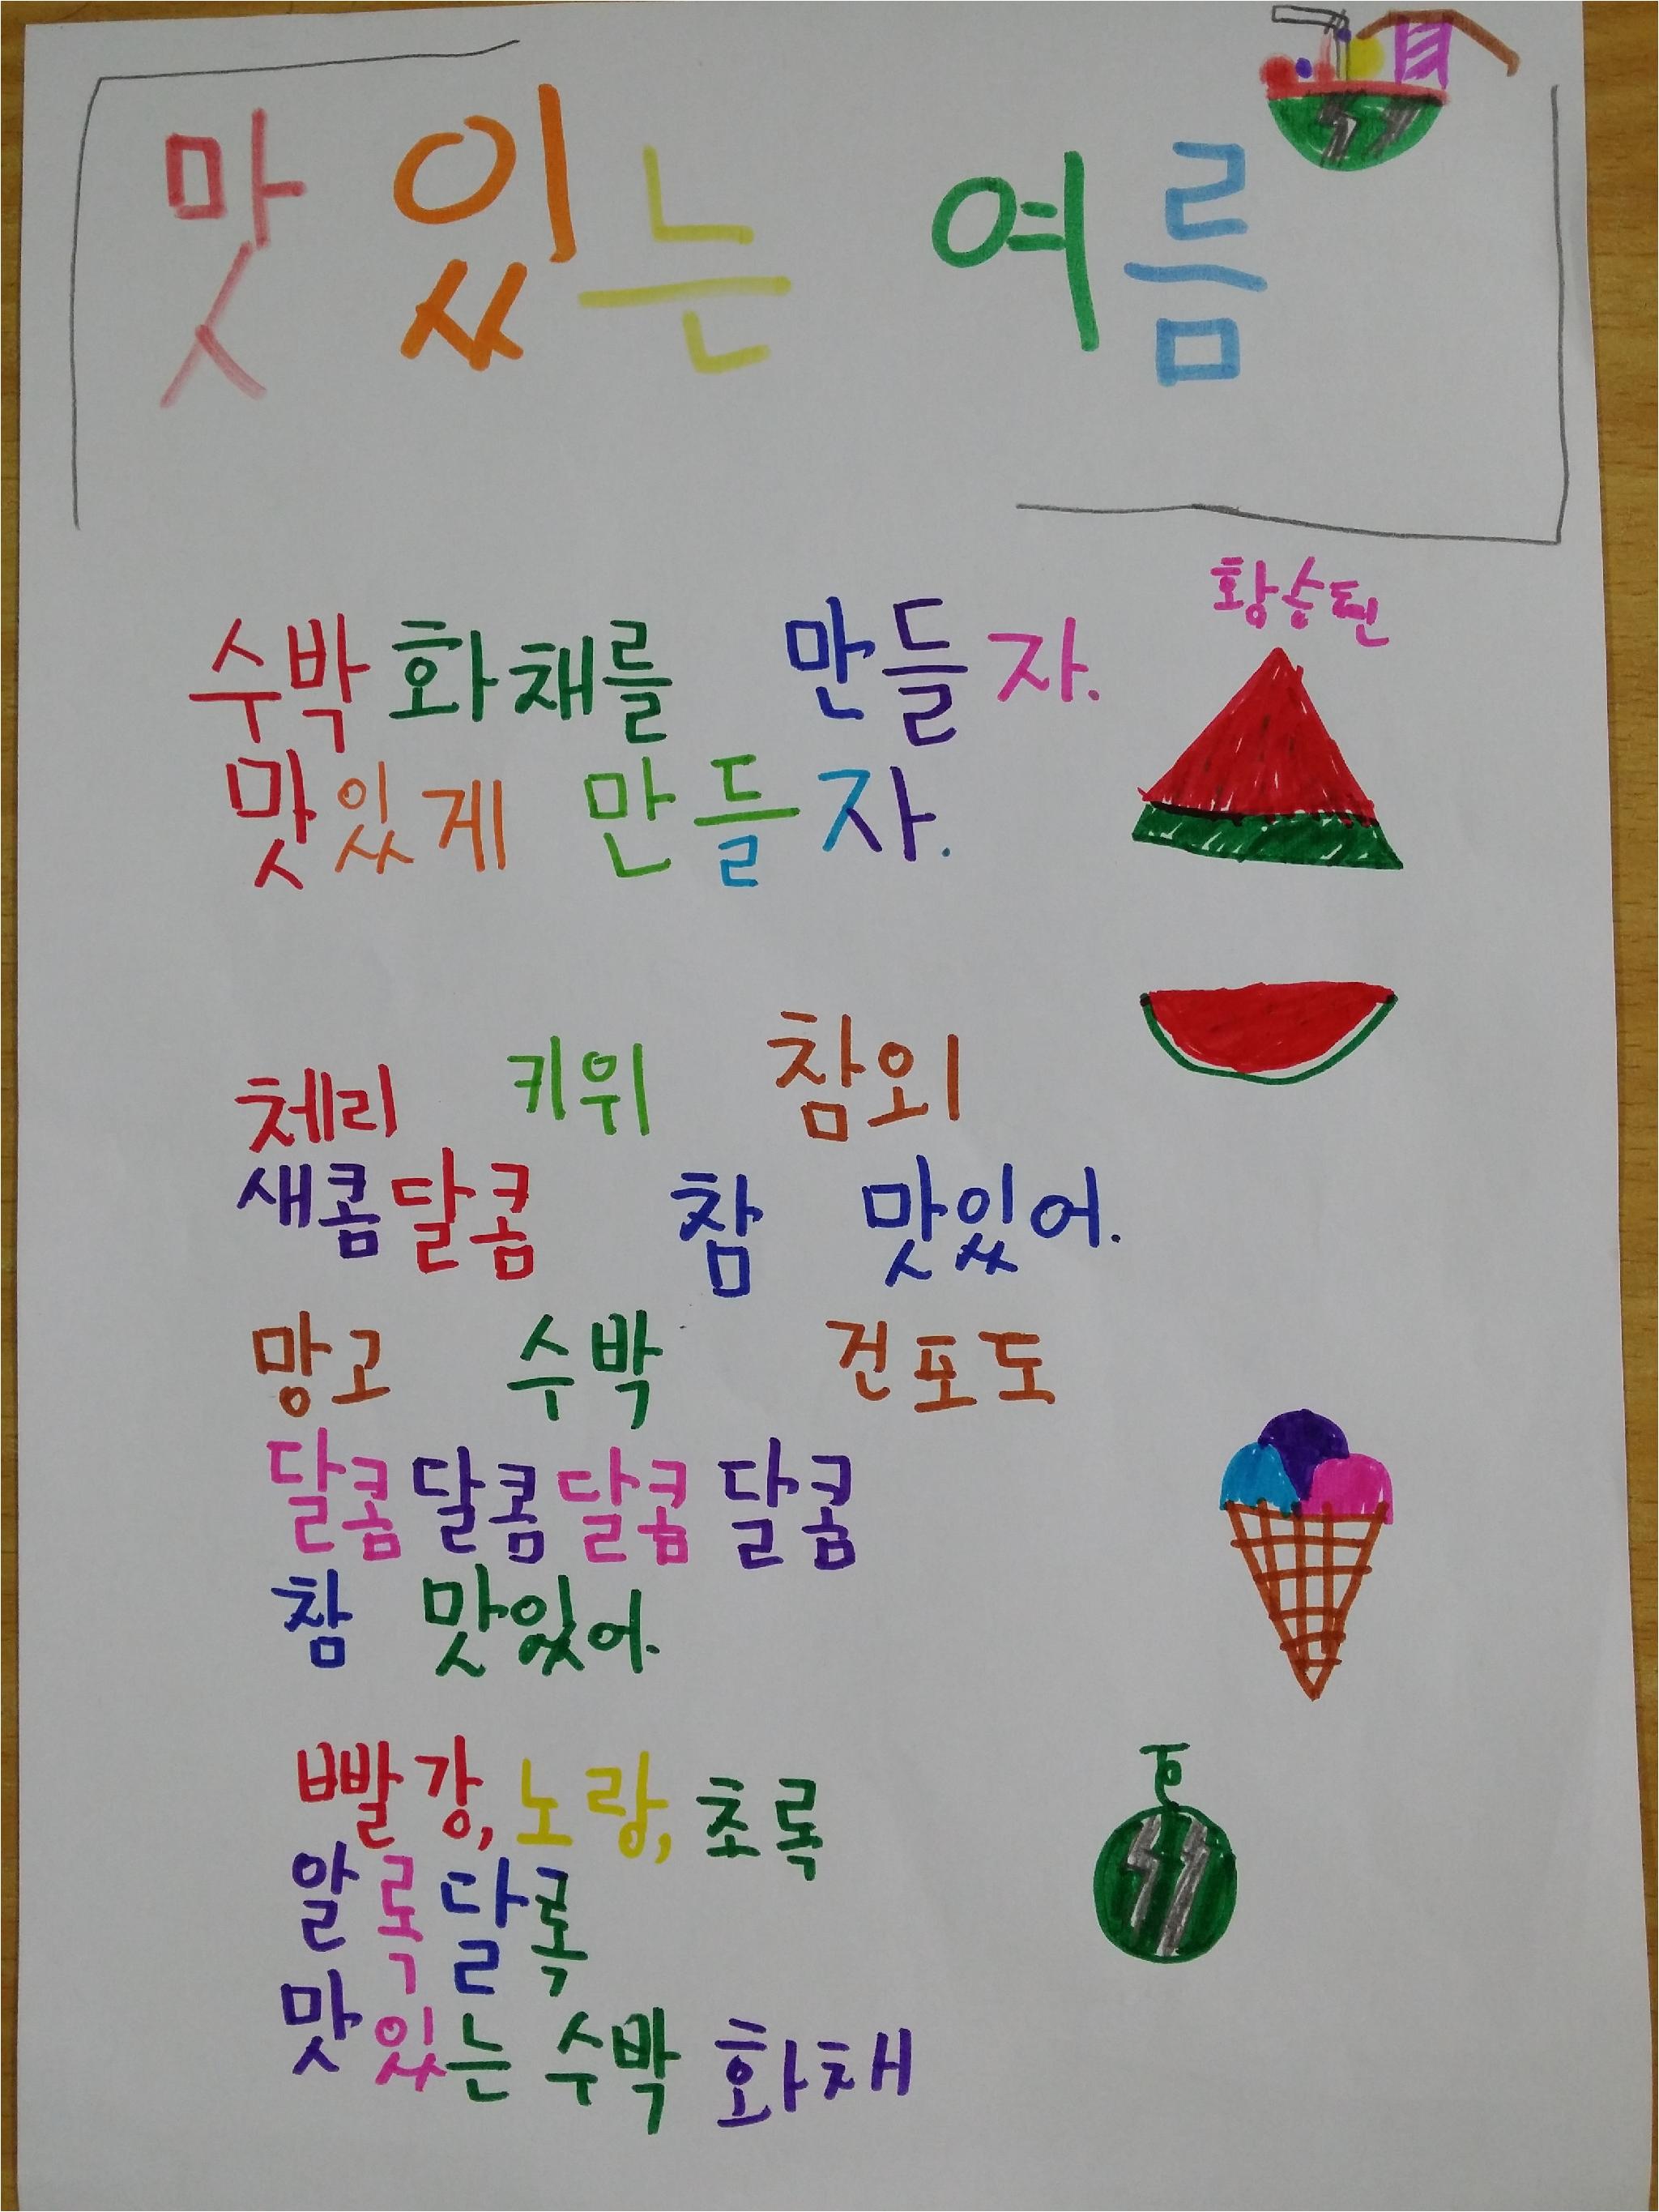 맛있는 여름
수박화채를 만들자.
맛있게 만들자.
체리 키위 참외
새콤달콤 참 맛있어.
망고 수박 건포도
달콤달콤달콤달콤
참 맛있어.
빨강, 노랑, 초록
알록달록
맛있는 수박 화채